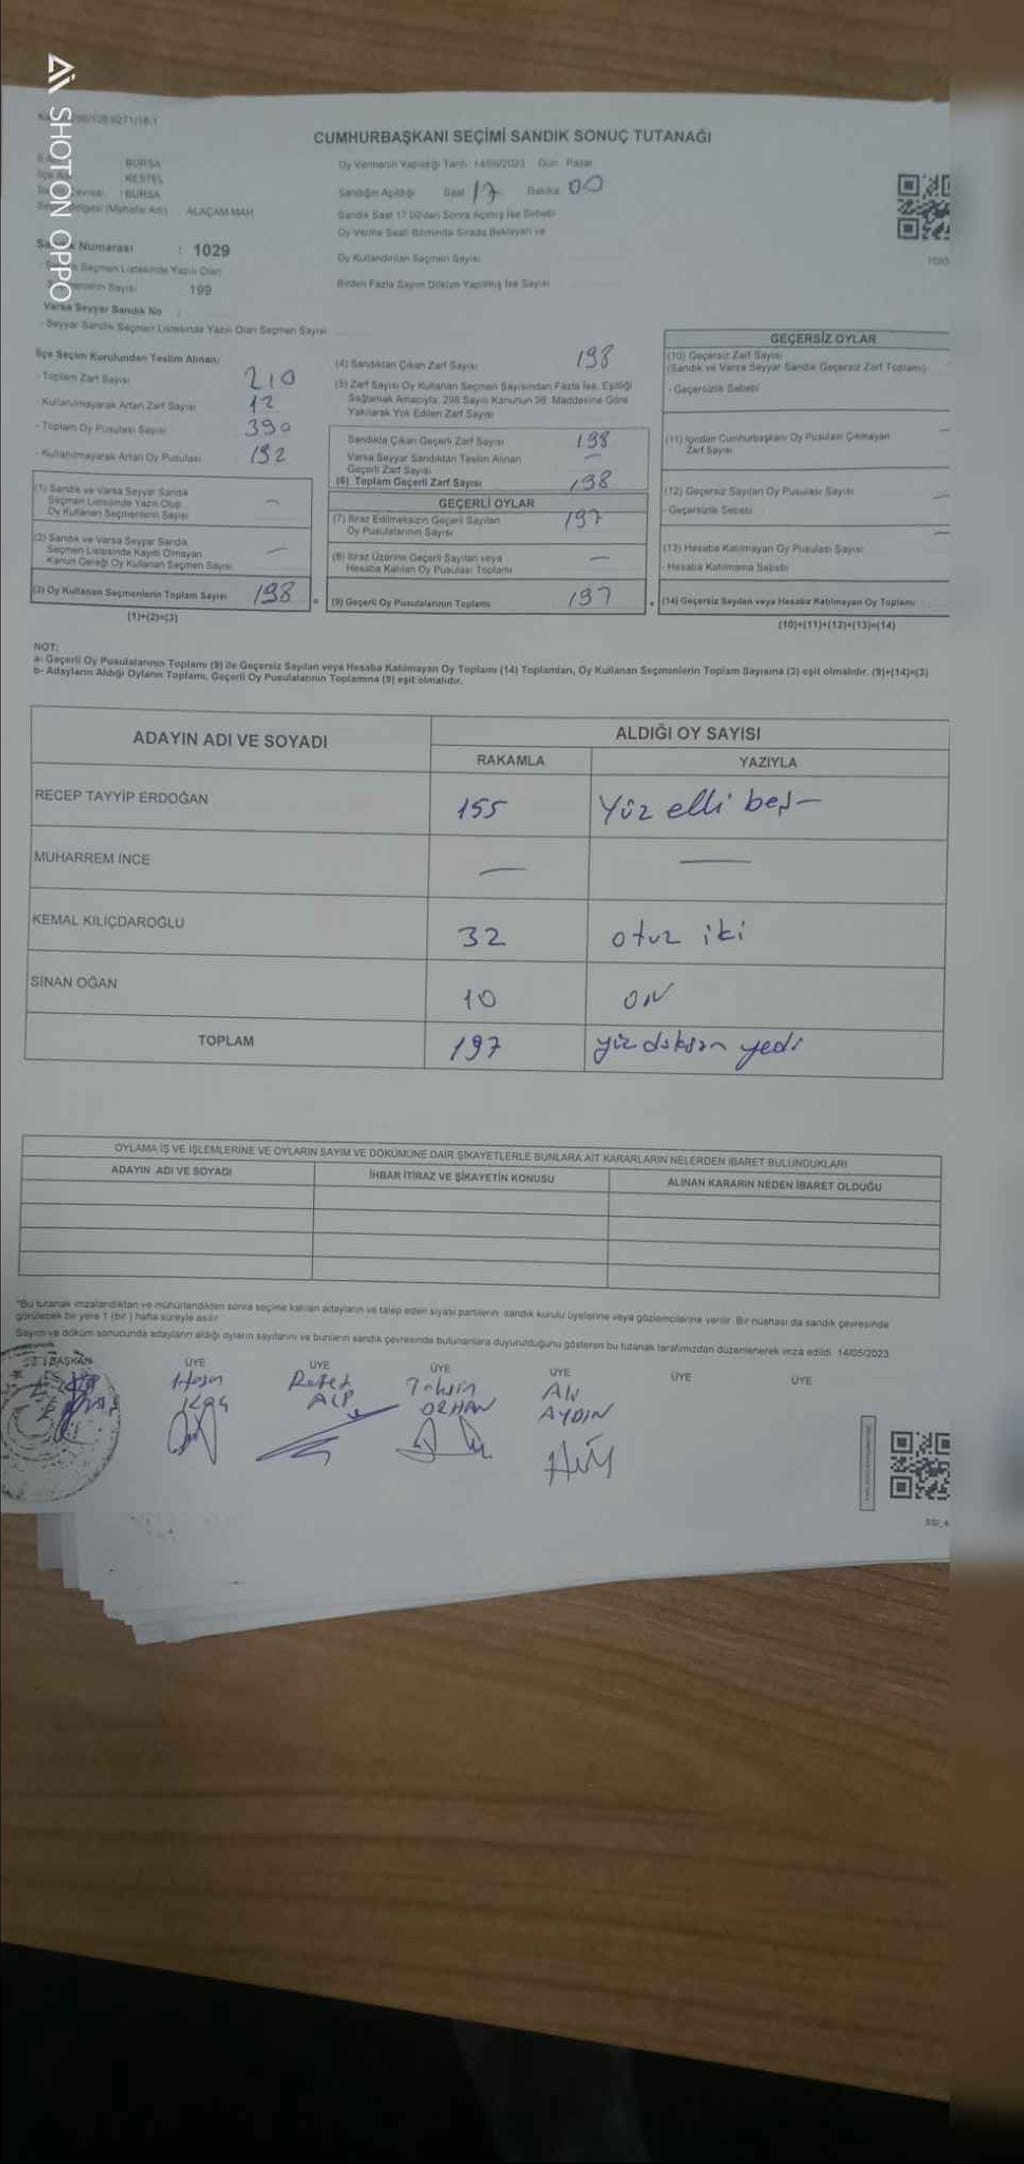 SHOT ON OPPO
CUMHURBAŞKANI SEÇİMİ SANDIK SONUÇ TUTANAĞI
BURSA
KESTEL
BURSA
ALAÇAM MAH
Oy Vermenin Yapıldığı Tarih 14/05/2023 Gün Pazar
Sandığın Açıldığı Saat 17 Dakika 00
Sandık Saat 17.00'den Sonra Açılmış İse Sebebi
Oy Verme Saati Bitiminde Sırada Bekleyen ve
Oy Kullandırılan Seçmen Sayısı
Birden Fazla Sayım Döküm Yapılmış İse Sayısı
Numarası : 1029
Seçmen Listesinde Yazılı Olan
Sayısı 199
Varsa Seyyar Sandık No
Seyyar Sandık Seçmen Listesinde Yazılı Olan Seçmen Sayısı
İlçe Seçim Kurulundan Teslim Alınan:
- Toplam Zarf Sayısı 210
- Kullanılmayarak Artan Zarf Sayısı 12
- Toplam Oy Pusulası Sayısı 390
- Kullanılmayarak Artan Oy Pusulası 192
(1) Sandık ve Varsa Seyyar Sandık
Seçmen Listesinde Yazılı Olup
Oy Kullanan Seçmenlerin Sayısı —
(2) Sandık ve Varsa Seyyar Sandık
Seçmen Listesinde Kayıtlı Olmayan
Kanun Gereği Oy Kullanan Seçmen Sayısı —
(3) Oy Kullanan Seçmenlerin Toplam Sayısı 198
(1)+(2)=(3)
(4) Sandıktan Çıkan Zarf Sayısı 198
(5) Zarf Sayısı Oy Kullanan Seçmen Sayısından Fazla İse, Eşitliği
Sağlamak Amacıyla, 298 Sayılı Kanunun 98. Maddesine Göre
Yakılarak Yok Edilen Zarf Sayısı
Sandıkta Çıkan Geçerli Zarf Sayısı 198
Varsa Seyyar Sandıktan Teslim Alınan
Geçerli Zarf Sayısı —
(6) Toplam Geçerli Zarf Sayısı 198
GEÇERLİ OYLAR
(7) İtiraz Edilmeksizin Geçerli Sayılan
Oy Pusulalarının Sayısı 197
(8) İtiraz Üzerine Geçerli Sayılan veya
Hesaba Katılan Oy Pusulası Toplamı —
(9) Geçerli Oy Pusulalarının Toplamı 197
GEÇERSİZ OYLAR
(10) Geçersiz Zarf Sayısı
(Sandık ve Varsa Seyyar Sandık Geçersiz Zarf Toplamı)
- Geçersizlik Sebebi
(11) İçinden Cumhurbaşkanı Oy Pusulası Çıkmayan
Zarf Sayısı —
(12) Geçersiz Sayılan Oy Pusulası Sayısı —
- Geçersizlik Sebebi
(13) Hesaba Katılmayan Oy Pusulası Sayısı —
- Hesaba Katılmama Sebebi
(14) Geçersiz Sayılan veya Hesaba Katılmayan Oy Toplamı
(10)+(11)+(12)+(13)=(14)
NOT:
a- Geçerli Oy Pusulalarının Toplamı (9) ile Geçersiz Sayılan veya Hesaba Katılmayan Oy Toplamı (14) Toplamları, Oy Kullanan Seçmenlerin Toplam Sayısına (3) eşit olmalıdır. (9)+(14)=(3)
b- Adayların Aldığı Oyların Toplamı, Geçerli Oy Pusulalarının Toplamına (9) eşit olmalıdır.
ADAYIN ADI VE SOYADI ALDIĞI OY SAYISI
RAKAMLA YAZIYLA
RECEP TAYYİP ERDOĞAN 155 Yüz elli beş —
MUHARREM İNCE — —
KEMAL KILIÇDAROĞLU 32 otuz iki
SİNAN OĞAN 10 ON
TOPLAM 197 yüz doksan yedi
OYLAMA İŞ VE İŞLEMLERİNE VE OYLARIN SAYIM VE DÖKÜMÜNE DAİR ŞİKAYETLERLE BUNLARA AİT KARARLARIN NELERDEN İBARET BULUNDUKLARI
ADAYIN ADI VE SOYADI İHBAR İTİRAZ VE ŞİKAYETİN KONUSU ALINAN KARARIN NEDEN İBARET OLDUĞU
*Bu tutanak imzalandıktan ve mühürlendikten sonra seçime katılan adayların ve talep eden siyasi partilerin sandık kurulu üyelerine veya gözlemcilerine verilir. Bir nüshası da sandık çevresinde
görülecek bir yere 1 (bir) hafta süreyle asılır.
Sayım ve döküm sonucunda adayların aldığı oyların sayılarını ve bunların sandık çevresinde bulunanlara duyurulduğunu gösteren bu tutanak tarafımızdan düzenlenerek imza edildi. 14/05/2023
BAŞKAN ÜYE ÜYE ÜYE ÜYE ÜYE ÜYE
ALP
ORHAN
AYDIN